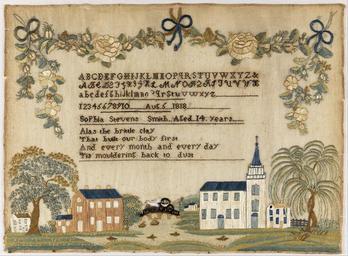 ABCDEFGHIJKLMNOPQRSTUVWXYZ&
abcdefghijklmno
12345678910 Aut 6 1818
Sophia Stevens Smith Aged 14 years
Alas the brittle clay
That built our body first
And every month and every day
Tis mouldering back to dust